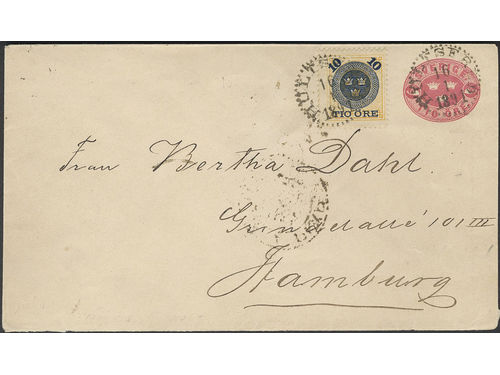 10 10
TIO ÖRE
SVERIGE
TIO ÖRE
Frau Bertha Dahl.
Grindelallé 101 III
Hamburg